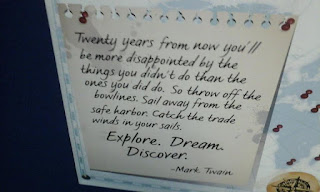 Twenty years from now you'll
be more disappointed by the
things you didn't do than the
ones you did do. So throw off the
bowlines. Sail away from the
safe harbor. Catch the trade
winds in your sails.
Explore. Dream.
Discover.
-Mark Twain